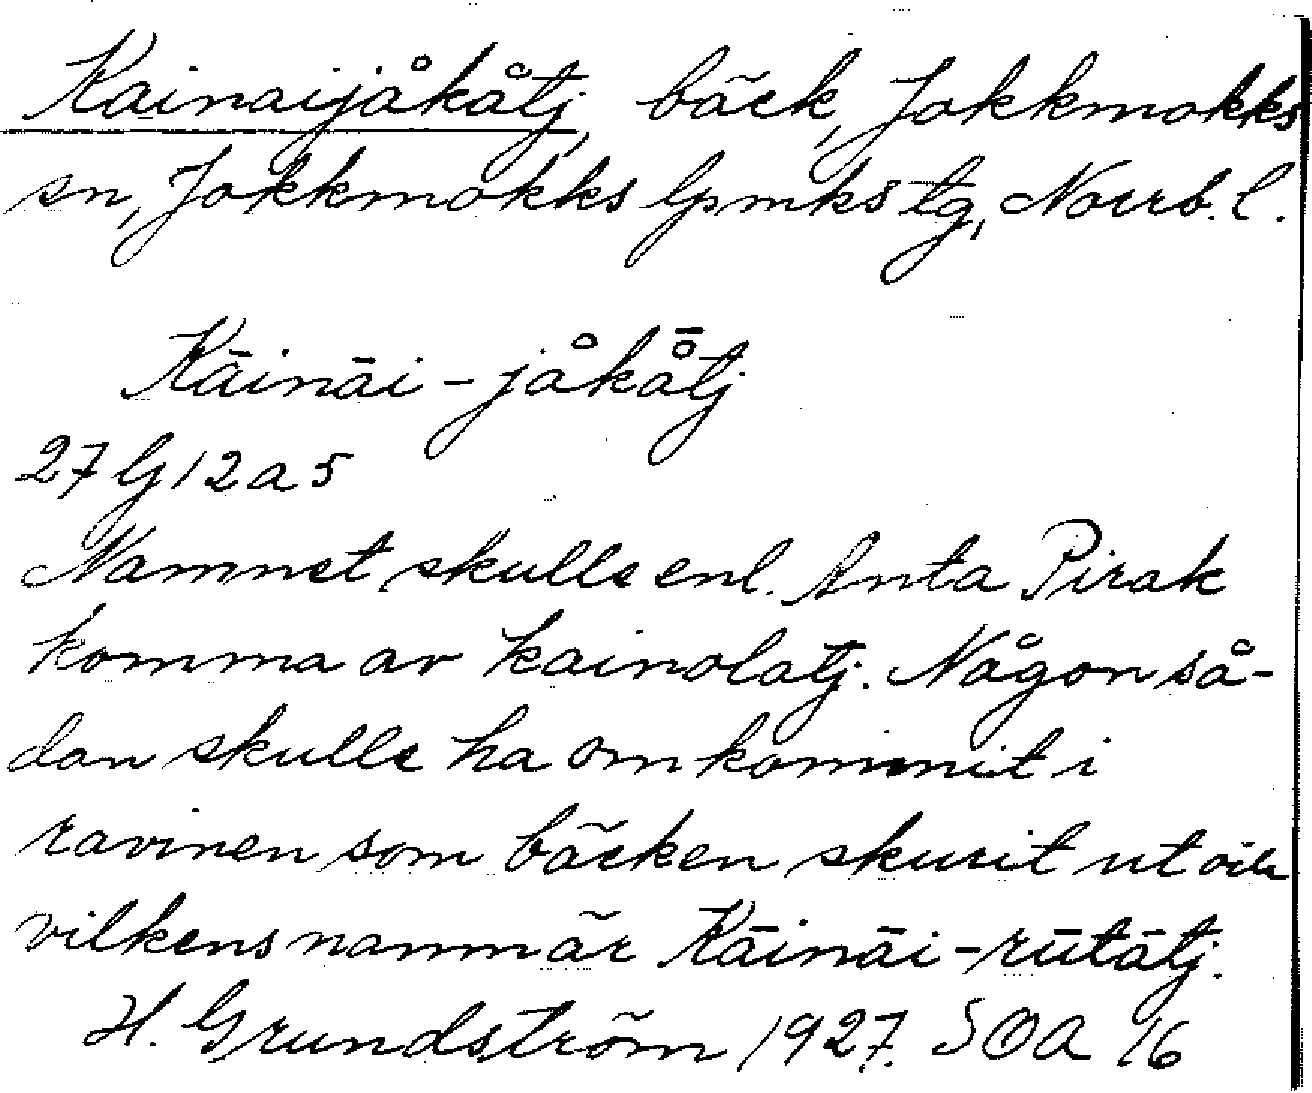 Kainaijåkåtj, bäck, Jokkmokks
sn, Jokkmokks lpmks tg, Norrb. l.
Kāināi-jåkå̄tj
27 G 12 a 5
Namnet skulle enl. Anta Pirak
komma av kainolatj. Någon så-
dan skulle ha omkommit i
ravinen som bäcken skurit ut och
vilkens namn är Kāināi-rūtātj.
H. Grundström 1927. SOA 16